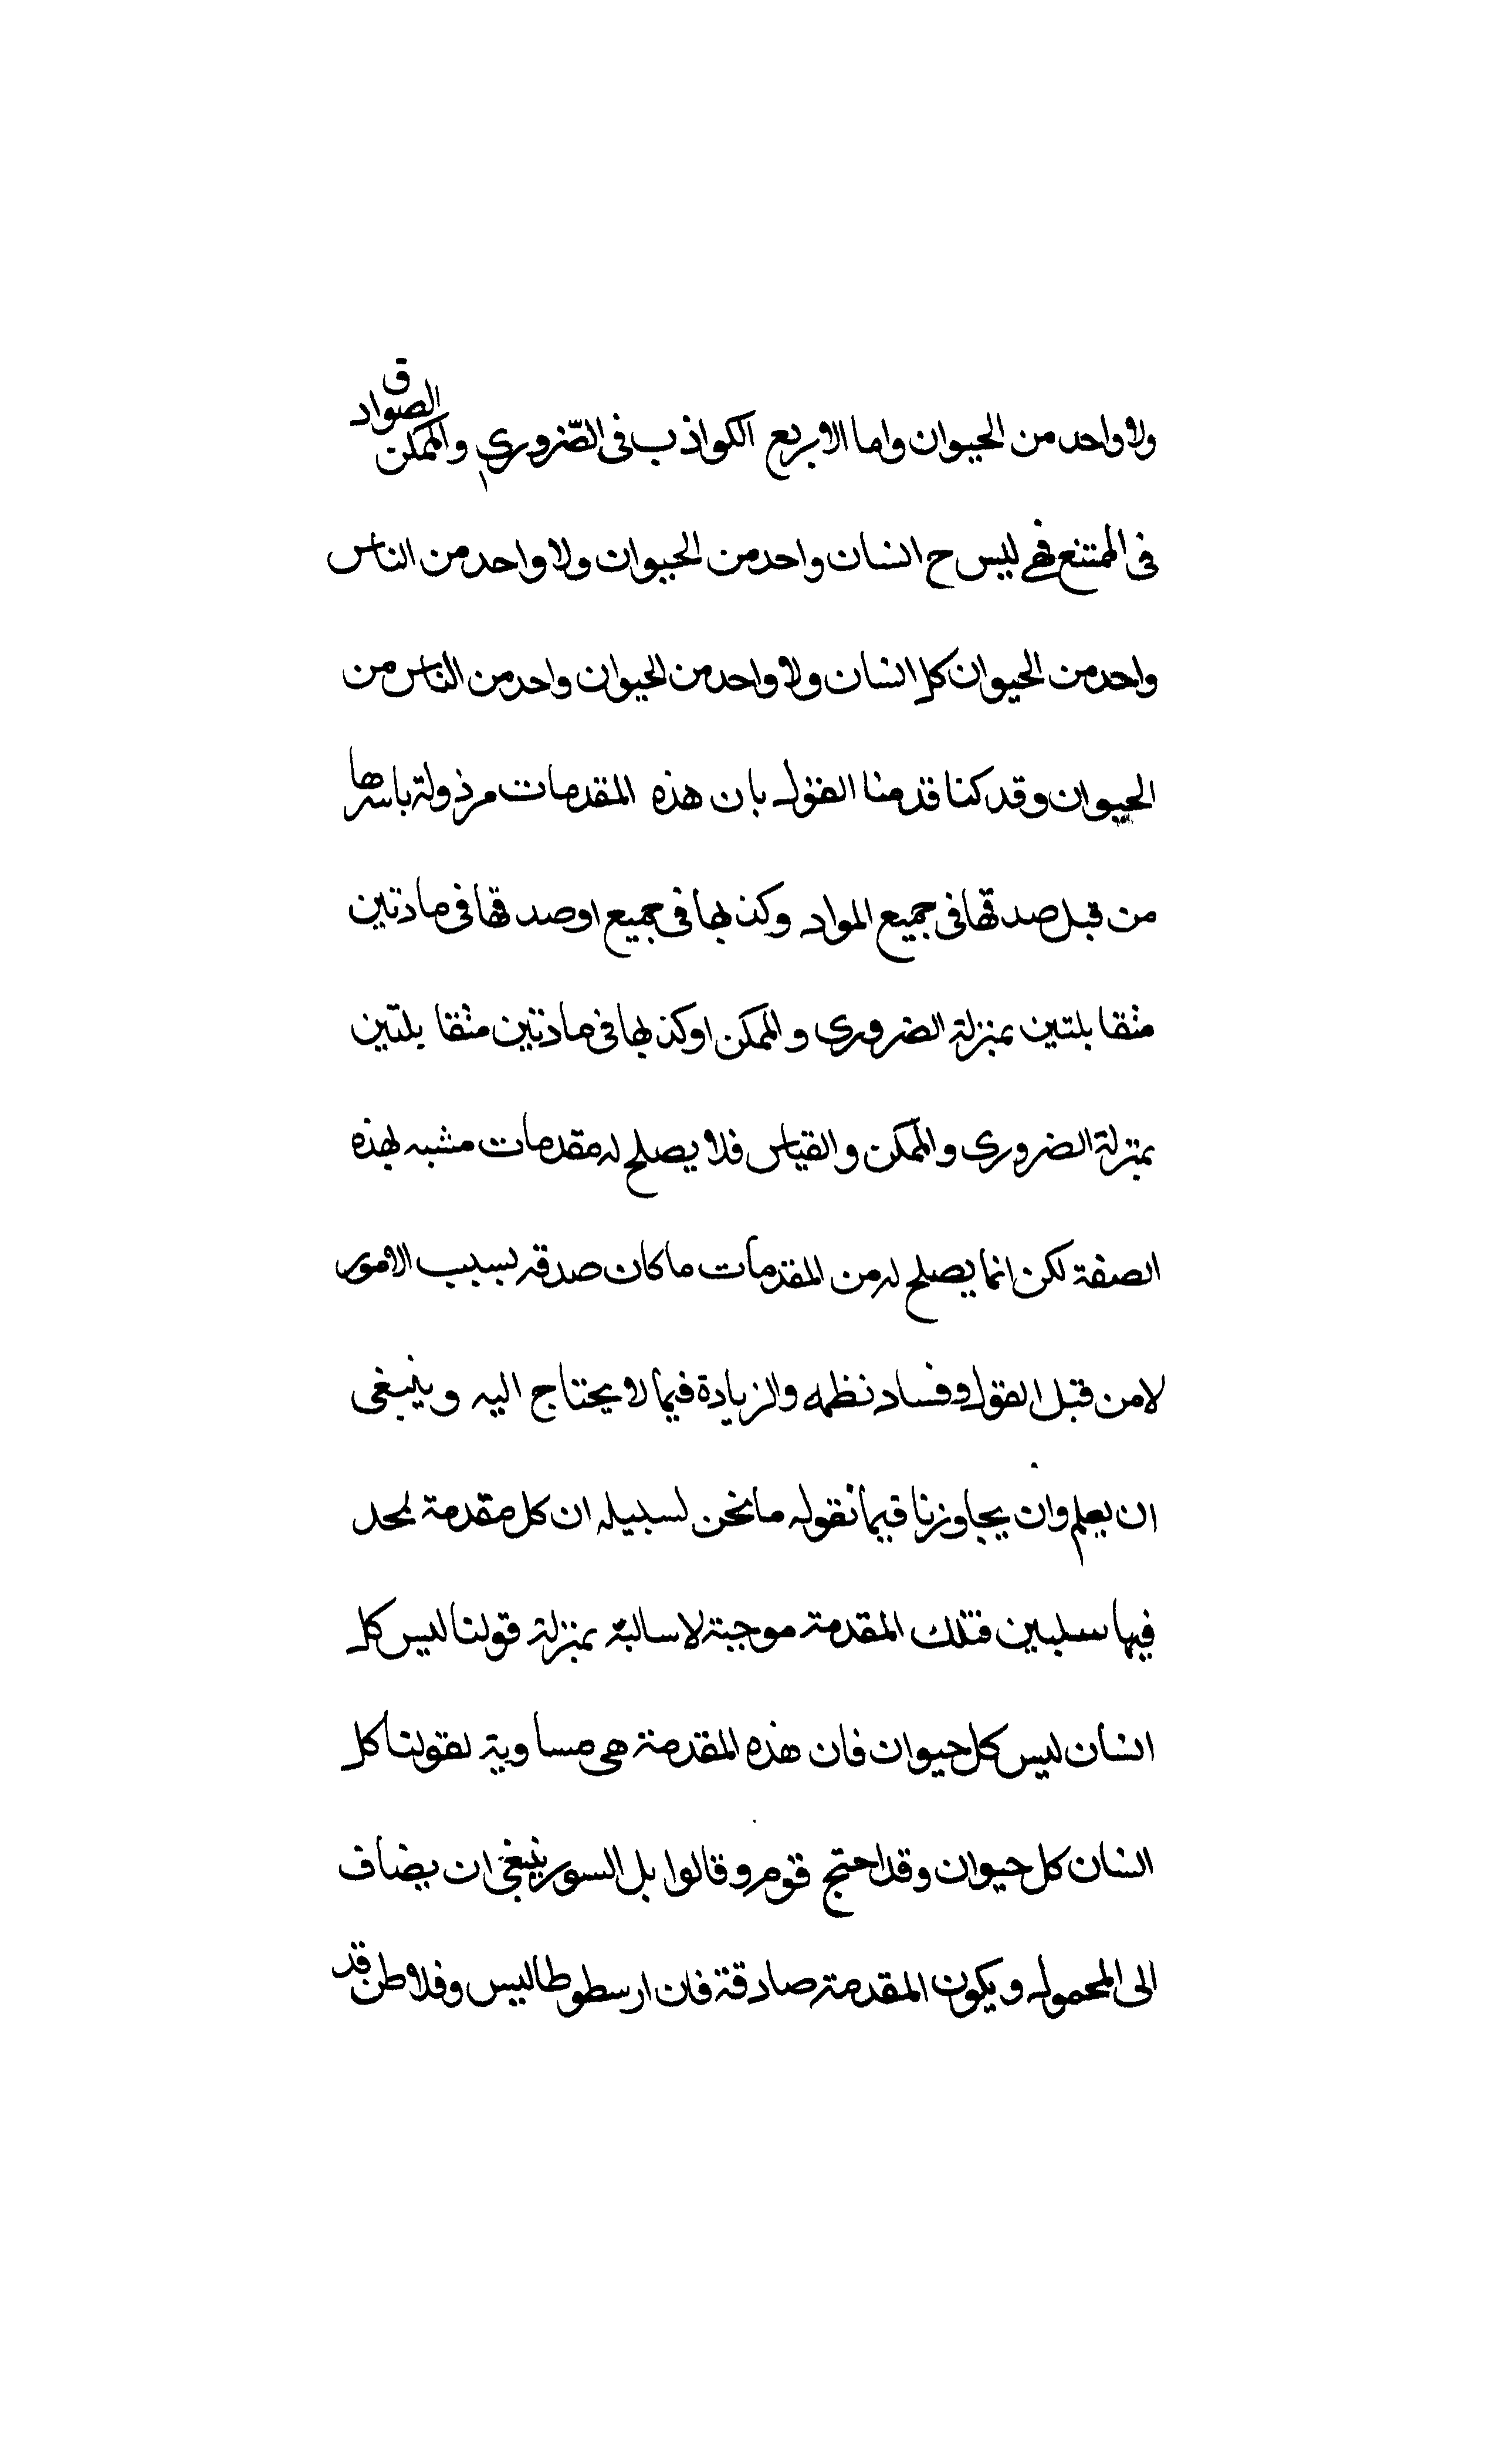 ولا واحد من الحيوان واما الاربع الكواذب فى الضّرورى والممكن الصوادق
فى الممتنع فهى ليس ح انسان واحد من الحيوان ولا واحد من الناس
واحد من الحيوان كل انسان ولا واحد من الحيوان واحد من الناس من
الحيوان وقد كنا قدمنا القول بان هذه المقدمات مرذولة باسرها
من قبل صدقها فى جميع المواد وكذبها فى جميع اوصدقها فى مادتين
متقابلتين بمنزلة الضرورى والممكن اوكذبها فى مادتين متقابلتين
بمنزلة الضرورى والممكن والقياس فلا يصلح له مقدمات مشبه بهذه
الصفة لكن انما يصلح له من المقدمات ما كان صدقه بسبب الامور
لا من قبل القول وفساد نظمه والزيادة فيما لا يحتاج اليه وينبغى
ان يعلم وان يجاوزنا فيما نقوله ما نحن لسبيله ان كل مقدمة نحد
فيها سلبين فتلك المقدمة موجبة لا سالبة بمنزلة قولنا ليس كل
انسان ليس كل حيوان فان هذه المقدمة هى مساوية لقولنا كل
انسان كل حيوان وقد احتج قوم وقالوا بل السور ينبغى ان يضاف
الى المحمول ويكون المقدمة صادقة فان ارسطوطاليس وفلاطن قد